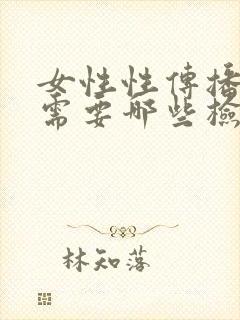 女性性傳播
需要哪些檢
林知落